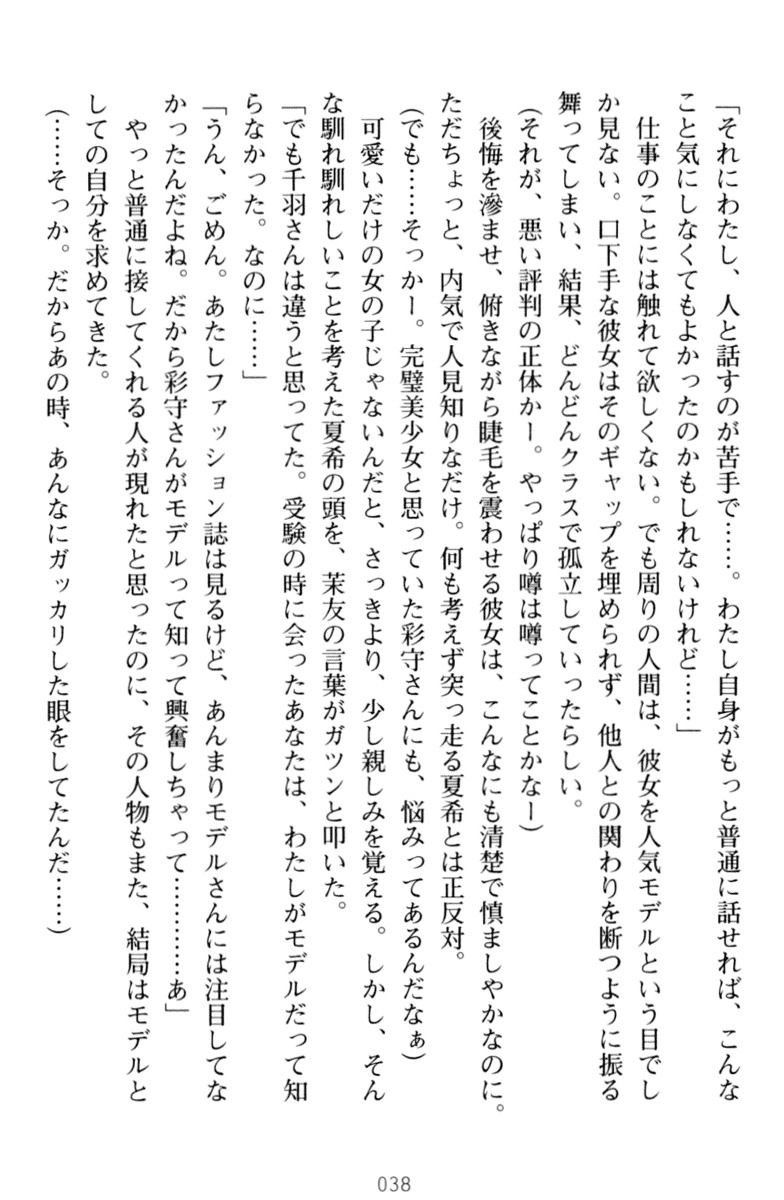 「それにわたし、人と話すのが苦手で……。わたし自身がもっと普通に話せれば、こんな
こと気にしなくてもよかったのかもしれないけれど……」
　仕事のことには触れて欲しくない。でも周りの人間は、彼女を人気モデルという目でし
か見ない。口下手な彼女はそのギャップを埋められず、他人との関わりを断つように振る
舞ってしまい、結果、どんどんクラスで孤立していったらしい。
（それが、悪い評判の正体かー。やっぱり噂は噂ってことかなー）
　後悔を滲ませ、俯きながら睫毛を震わせる彼女は、こんなにも清楚で慎ましやかなのに。
ただちょっと、内気で人見知りなだけ。何も考えず突っ走る夏希とは正反対。
（でも……そっかー。完璧美少女と思っていた彩守さんにも、悩みってあるんだなぁ）
　可愛いだけの女の子じゃないんだと、さっきより、少し親しみを覚える。しかし、そん
な馴れ馴れしいことを考えた夏希の頭を、茉友の言葉がガツンと叩いた。
「でも千羽さんは違うと思ってた。受験の時に会ったあなたは、わたしがモデルだって知
らなかった。なのに……」
「うん、ごめん。あたしファッション誌は見るけど、あんまりモデルさんには注目してな
かったんだよね。だから彩守さんがモデルって知って興奮しちゃって…………あ」
　やっと普通に接してくれる人が現れたと思ったのに、その人物もまた、結局はモデルと
しての自分を求めてきた。
（……そっか。だからあの時、あんなにガッカリした眼をしてたんだ……）
038